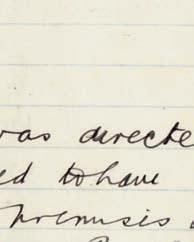 was directe
ed to have
premises